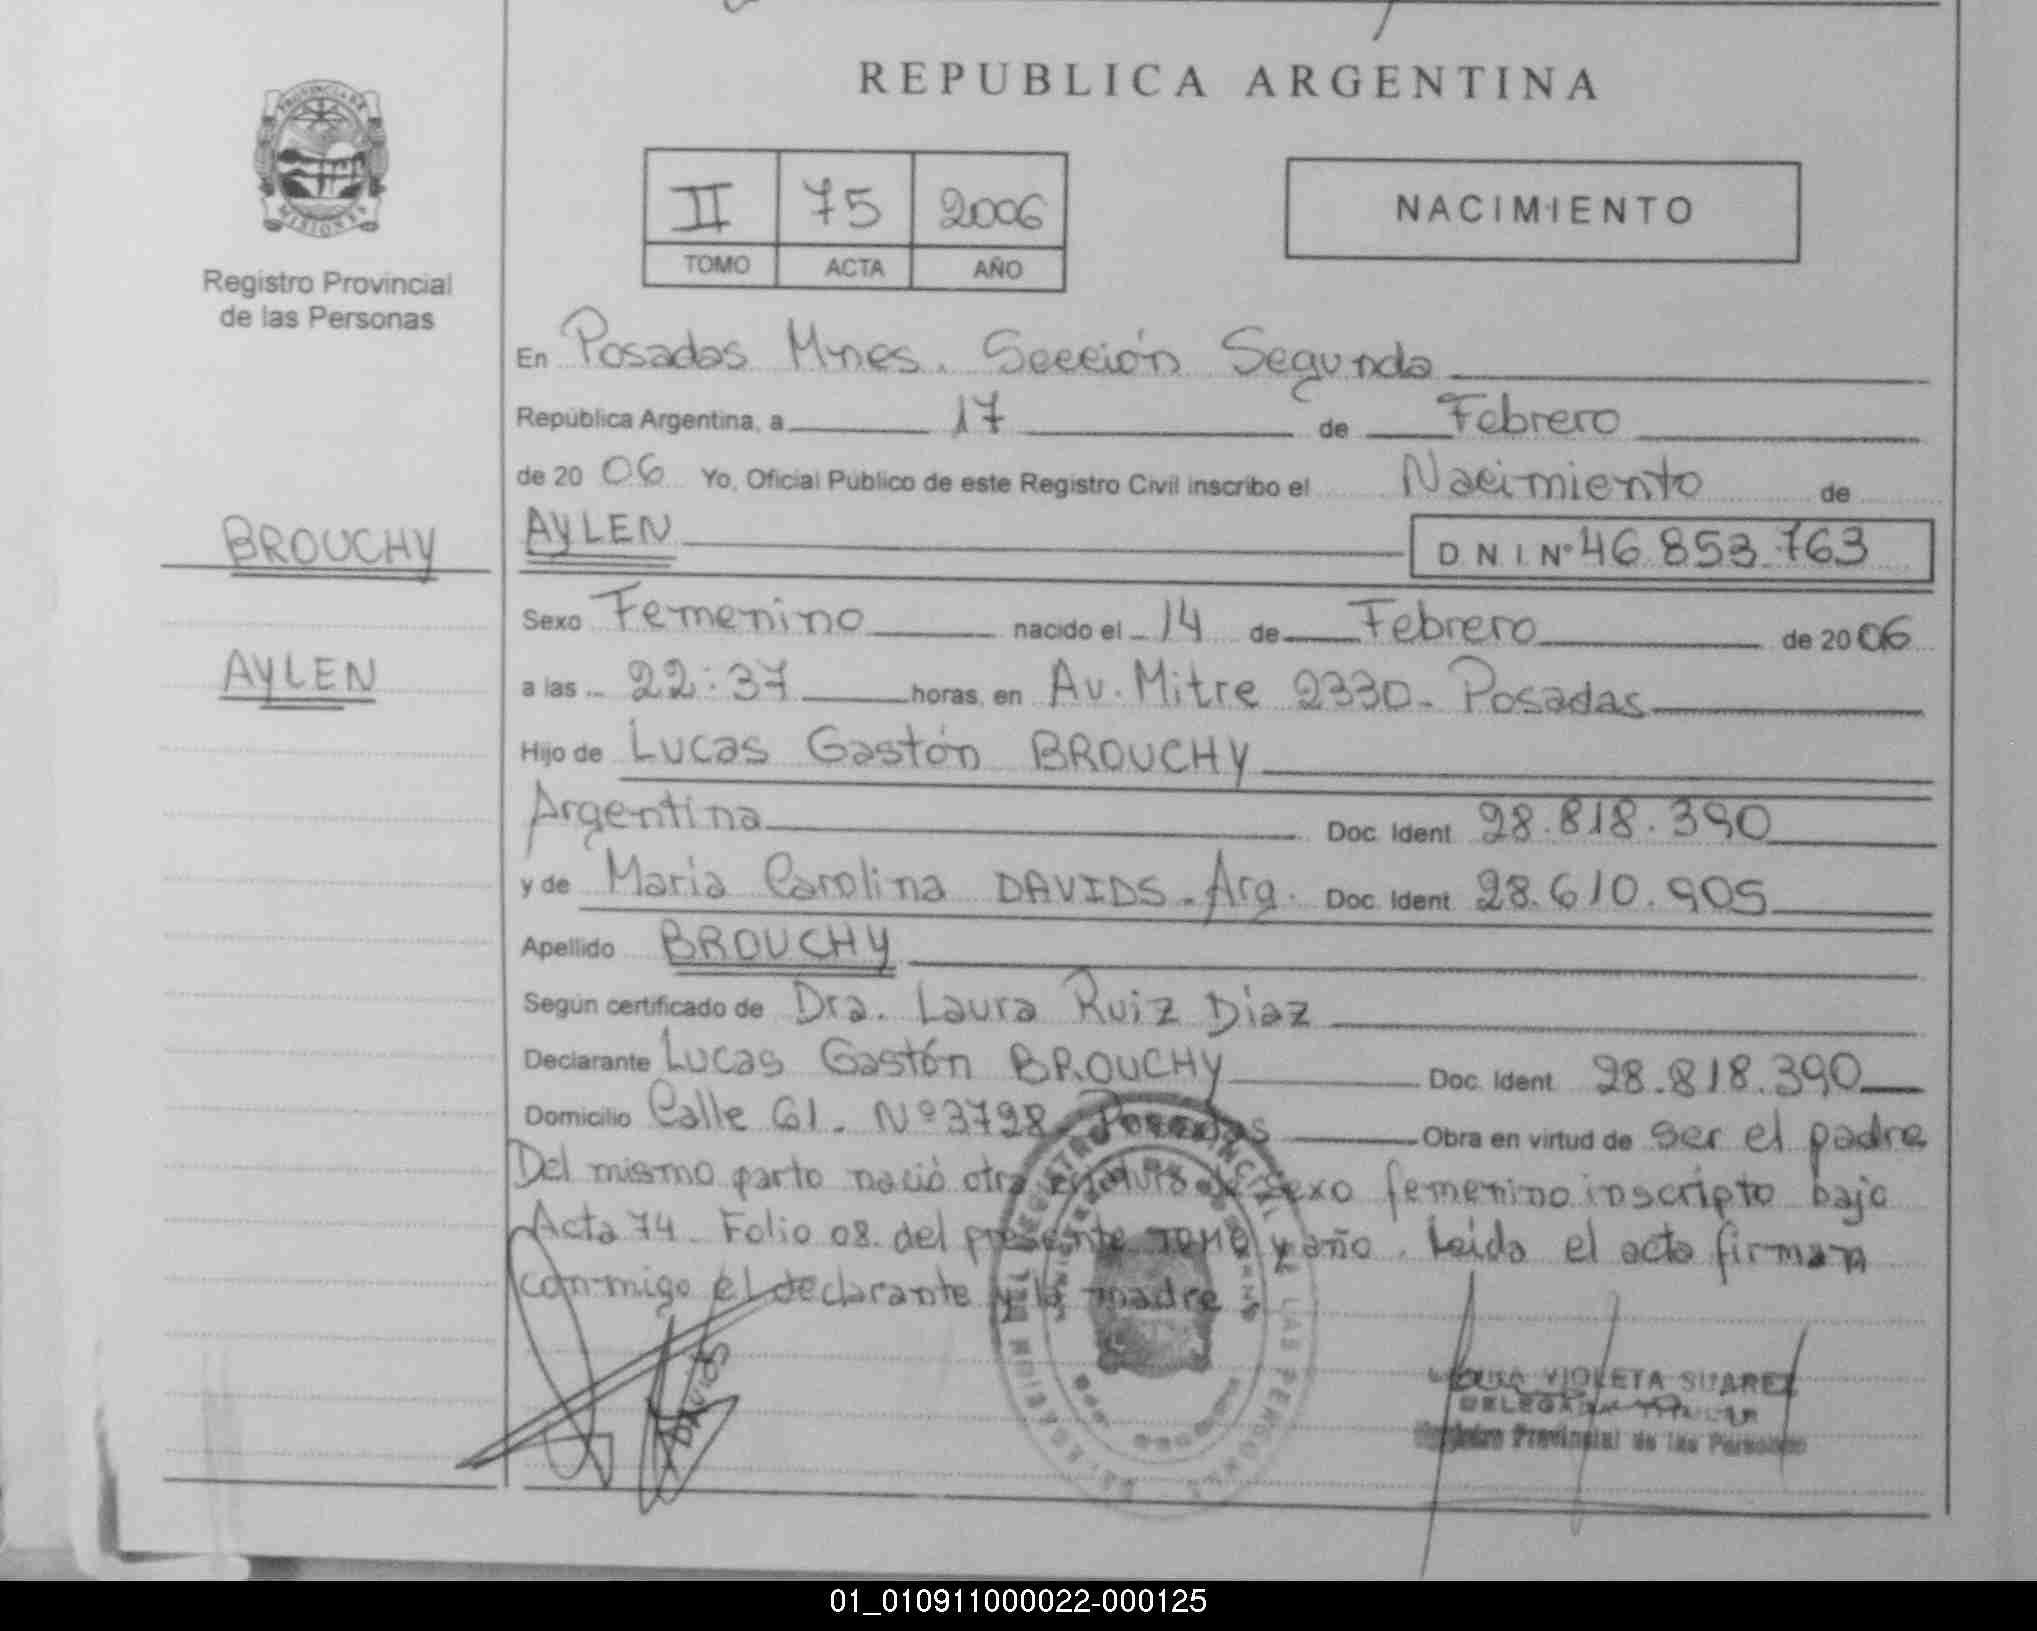 REPUBLICA ARGENTINA
PROVINCIA DE
MISIONES
Registro Provincial
de las Personas
II 75 2006
TOMO ACTA AÑO
NACIMIENTO
En Posadas Mnes. Sección Segunda
República Argentina, a 17 de Febrero
de 2006 Yo, Oficial Público de este Registro Civil inscribo el Nacimiento de
BROUCHY
AYLEN D.N.I. Nº 46.853.763
Sexo Femenino nacido el 14 de Febrero de 2006
AYLEN
a las 22:37 horas, en Av. Mitre 2330- Posadas
Hijo de Lucas Gastón BROUCHY
Argentina Doc. Ident. 28.818.390
y de Maria Carolina DAVIDS - Arg. Doc. Ident. 28.610.905
Apellido BROUCHY
Según certificado de Dra. Laura Ruiz Diaz
Declarante Lucas Gastón BROUCHY Doc. Ident. 28.818.390
Domicilio Calle 61. Nº 3728 Posadas Obra en virtud de ser el padre
Del mismo parto nació otra criatura de sexo femenino inscripto bajo
Acta 74 - Folio 08. del presente Tomo y año. Leida el acta firman
conmigo el declarante y la madre
DAVIDS
VIOLETA SUAREZ
DELEGADA TITULAR
Registro Provincial de las Personas
REGISTRO PROVINCIAL DE LAS PERSONAS
01_010911000022-000125